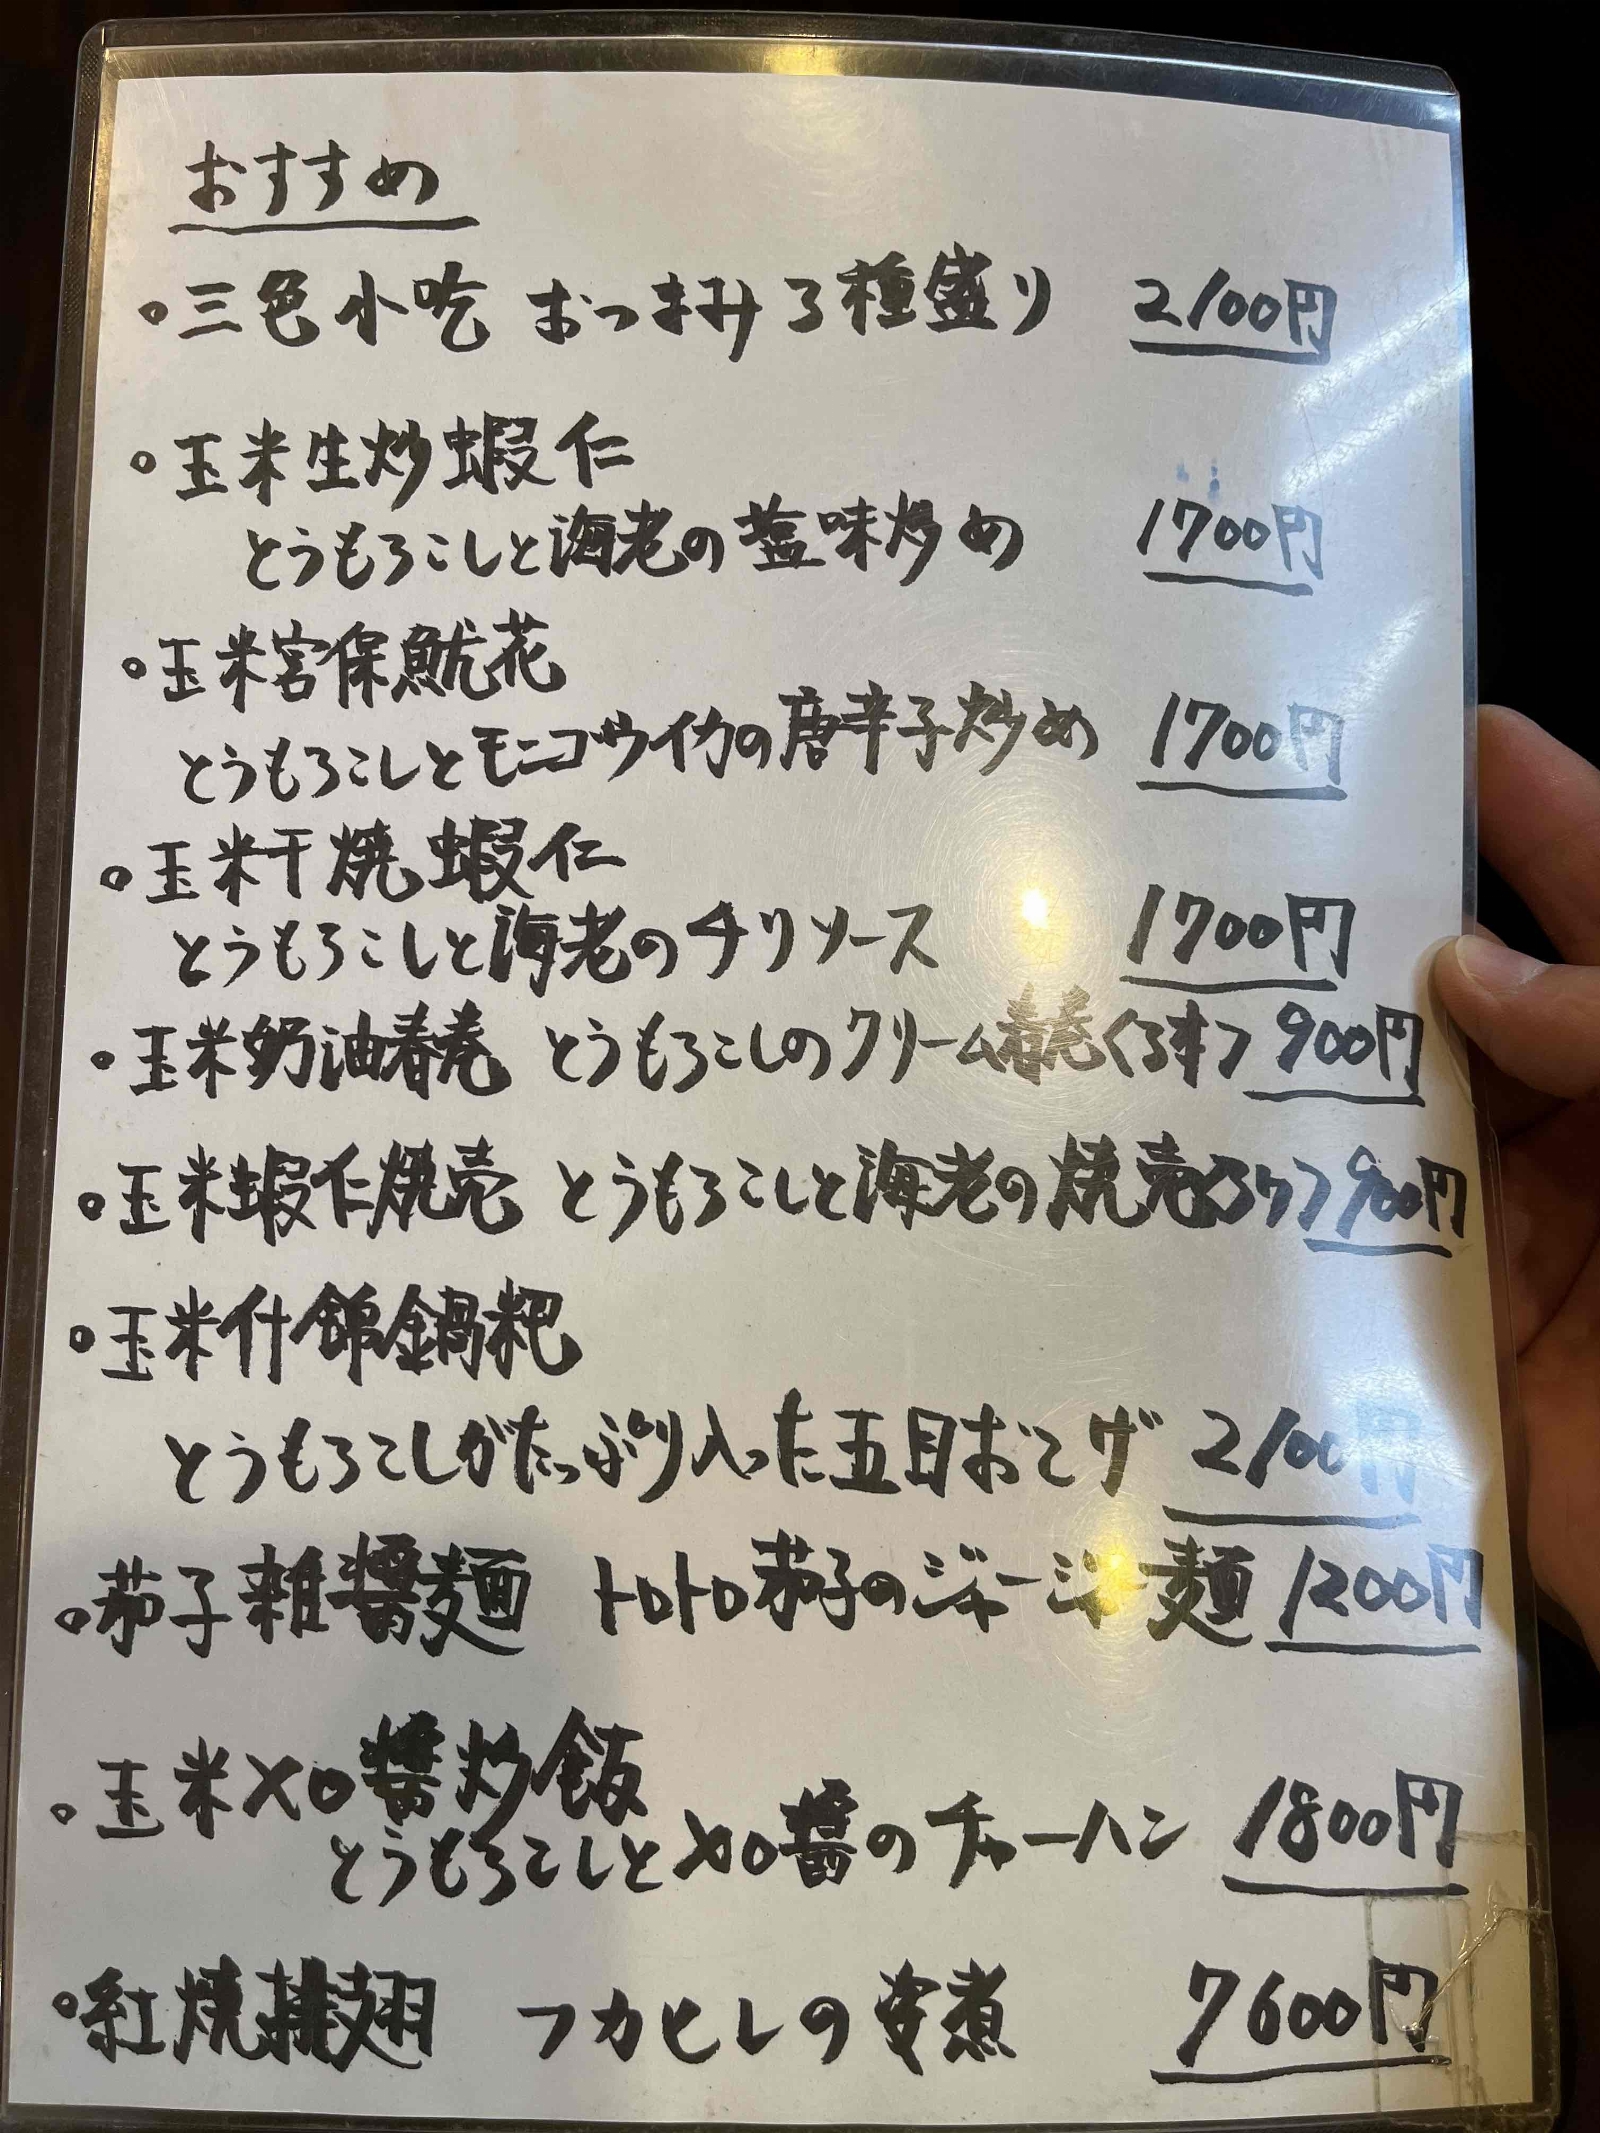 おすすめ
。三色小吃 おつまみ3種盛り 2100円
。玉米生炒蝦仁
とうもろこしと海老の塩味炒め 1700円
。玉米宮保魷花
とうもろこしとモンゴウイカの唐辛子炒め 1700円
。玉米干焼蝦仁
とうもろこしと海老のチリソース 1700円
。玉米奶油春巻 とうもろこしのクリーム春巻 900円
。玉米蝦仁焼売 とうもろこしと海老の焼売 900円
。玉米什錦鍋粑
とうもろこしがたっぷり入った五目おこげ 2100円
。茄子雑醤麺 トロトロ茄子のジャージャー麺 1200円
。玉米XO醤炒飯
とうもろこしとXO醤のチャーハン 1800円
。紅焼排翅 フカヒレの姿煮 7600円